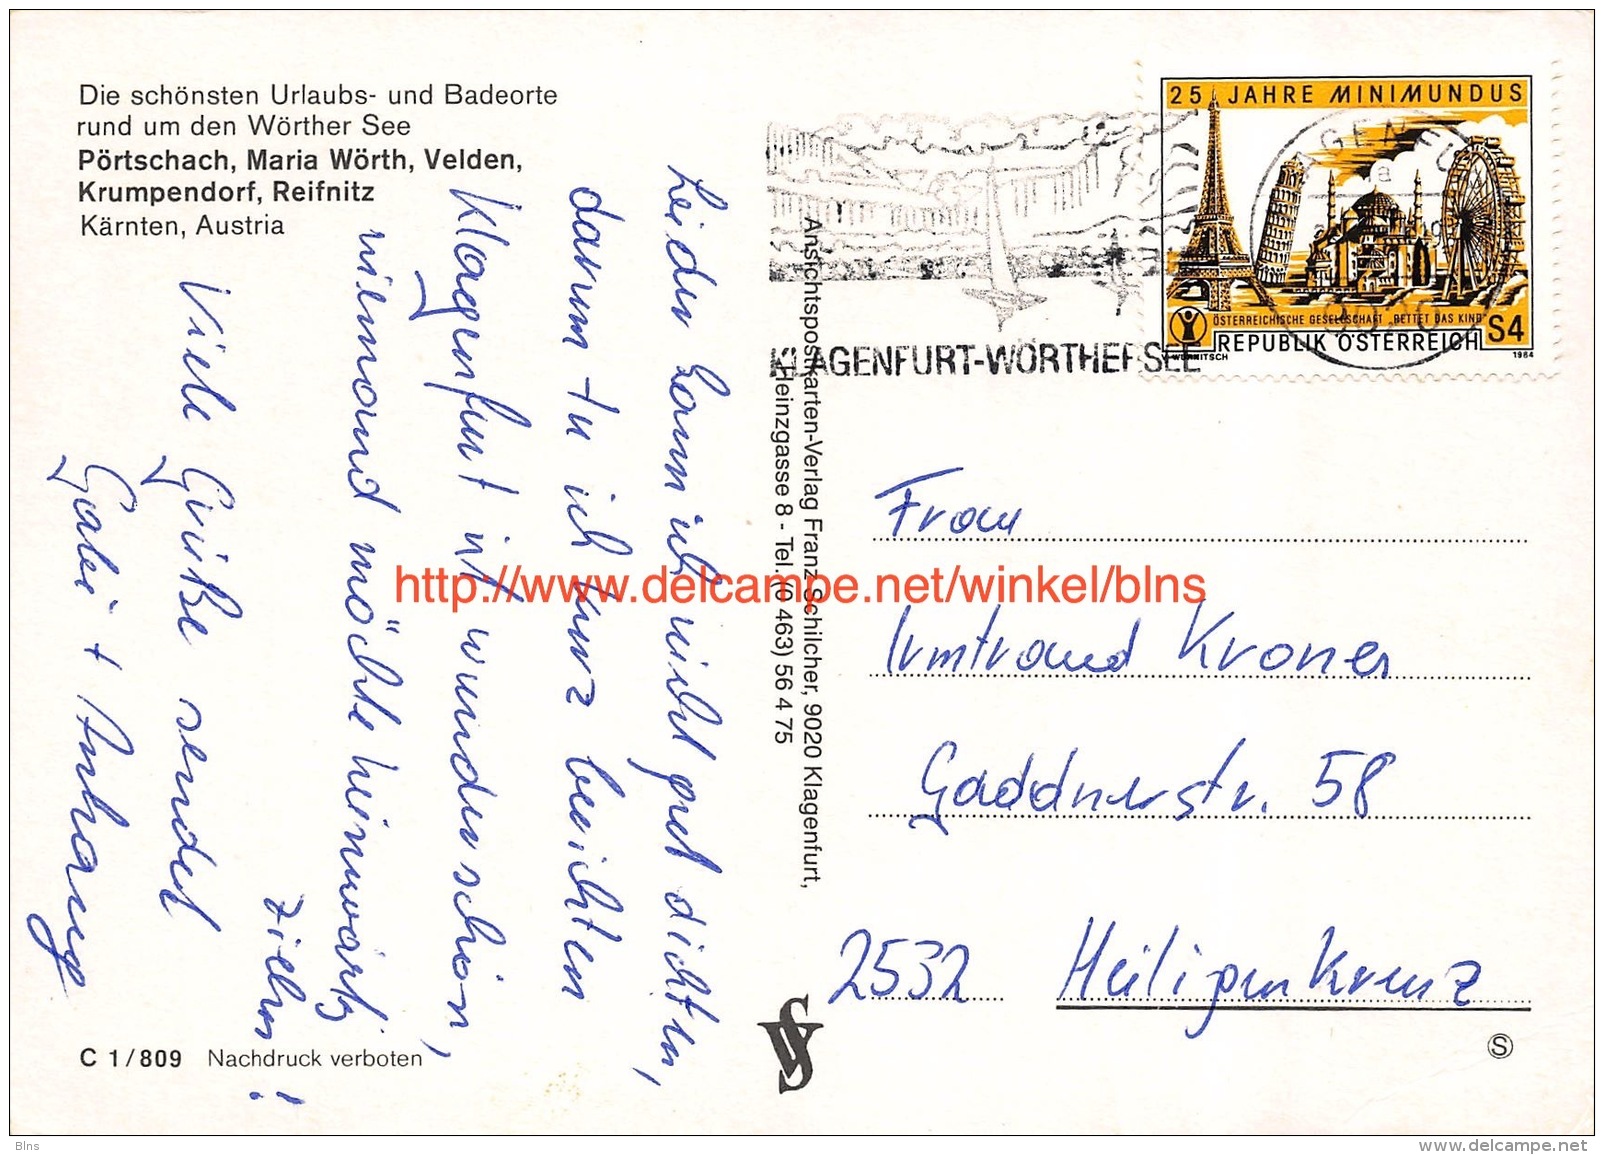 Die schönsten Urlaubs- und Badeorte
rund um den Wörther See
Pörtschach, Maria Wörth, Velden,
Krumpendorf, Reifnitz
Kärnten, Austria
Leider kann ich nicht gut dichten,
darum tu ich kurz berichten
Klagenfurt ist wunderschön,
niemand möchte heimwärtz
ziehn!
Viele Grüße sendet
Gabi +
C 1/809 Nachdruck verboten
Ansichtspostkarten-Verlag Franz Schilcher, 9020 Klagenfurt,
Heinzgasse 8 - Tel. (0 463) 56 4 75
KLAGENFURT-WÖRTHERSEE
25 JAHRE MINIMUNDUS
ÖSTERREICHISCHE GESELLSCHAFT „RETTET DAS KIND"
REPUBLIK ÖSTERREICH S4
1984
Frau
Irmtraud Kroner
Gaddnerstr. 58
2532 Heiligenkreuz
S
http://www.delcampe.net/winkel/blns
Blns
www.delcampe.net